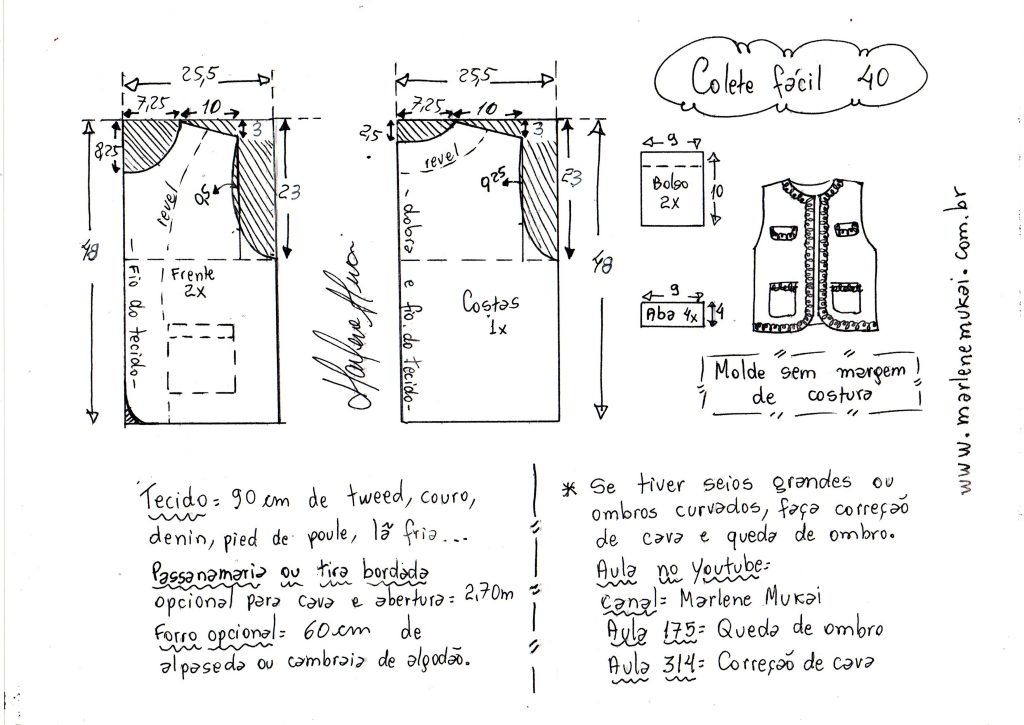 Colete fácil 40
25,5
7,25 10
3
8,25
revel
0,5
23
48
Fio do tecido
Frente
2x
25,5
7,25 10
3
2,5
revel
0,25
23
48
dobra e fio do tecido
Costas
1x
9
Bolso
2x
10
9
Aba 4x
4
Molde sem margem
de costura
www.marlenemukai.com.br
Tecido= 90 cm de tweed, couro,
denin, pied de poule, lã fria...
Passanamaria ou tira bordada
opcional para cava e abertura= 2,70m
Forro opcional= 60 cm de
alpaseda ou cambraia de algodão.
* Se tiver seios grandes ou
ombros curvados, faça correção
de cava e queda de ombro.
Aula no Youtube=
Canal= Marlene Mukai
Aula 175= Queda de ombro
Aula 314= Correção de cava